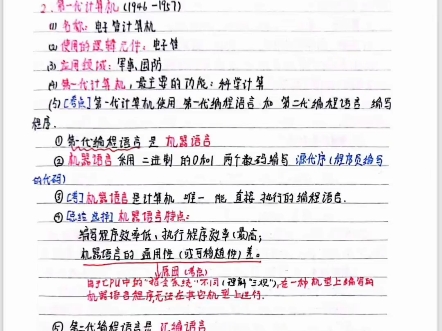 2. 第一代计算机 (1946-1957)
(1) 名称: 电子管计算机
(2) 使用的逻辑元件: 电子管
(3) 应用领域: 军事、国防
(4) 第一代计算机, 最主要的功能: 科学计算
(5) [考点] 第一代计算机使用 第一代编程语言 和 第二代编程语言 编写
程序.
① 第一代编程语言 是 机器语言
② 机器语言 采用 二进制 的0和1 两个数码编写 源代序 (程序员编写
的代码)
③ [考] 机器语言 是计算机 唯一 能 直接 执行的编程语言.
④ [总结 选择] 机器语言特点:
编写程序效率低、执行程序效率(最)高;
机器语言的 通用性 (或可移植性) 差。
原因 (考点)
因为CPU中的"指令系统"不同(理解"三观"), 在一种机型上编写的
机器语言程序无法在其它机型上运行.
⑤ 第二代编程语言是 汇编语言